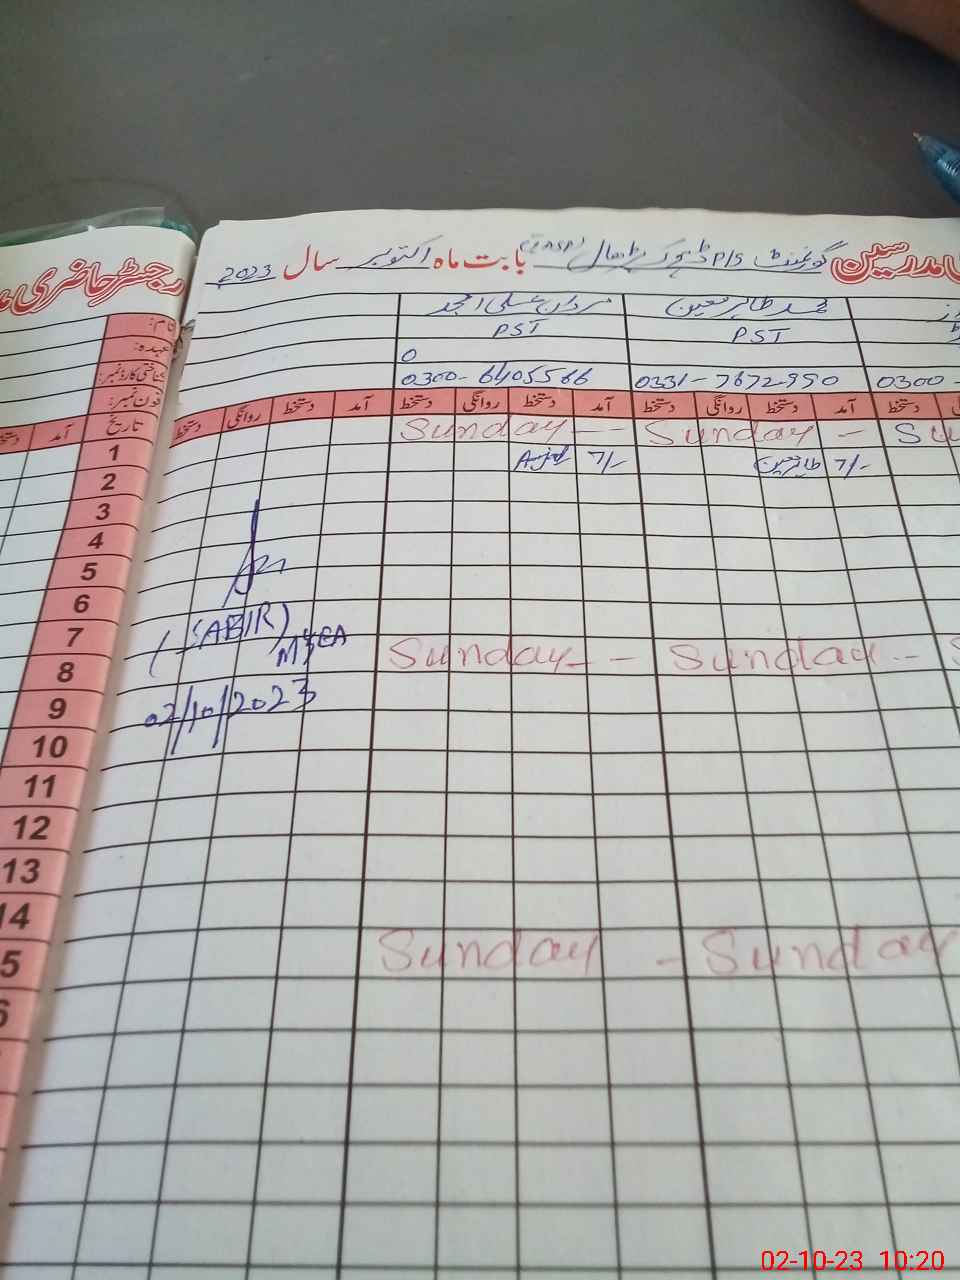 رجسٹر حاضری
مدرسین گورنمنٹ P/S بابت ماہ اکتوبر سال 2023
نام:
عہدہ:
شناختی کارڈ نمبر:
فون نمبر:
محمد طاہر معین
PST PST
0
0300- 0331-7672990 0300-6405566
تاریخ
آمد دستخط روانگی دستخط آمد دستخط روانگی دستخط آمد دستخط روانگی دستخط
آمد
1 Sunday-- Sunday - Su
2 7/- طاہر معین 7/-
3
4
5
6
7
(SABIR)
MEA
8 Sunday-- Sunday -- S
9
02/10/2023
10
11
12
13
14
5 Sunday - Sunday
6
02-10-23 10:20